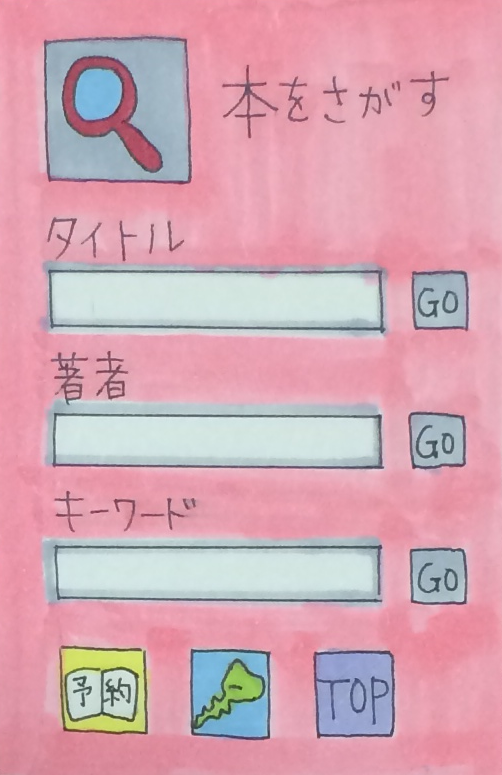 本をさがす
タイトル
GO
著者
GO
キーワード
GO
予約
TOP